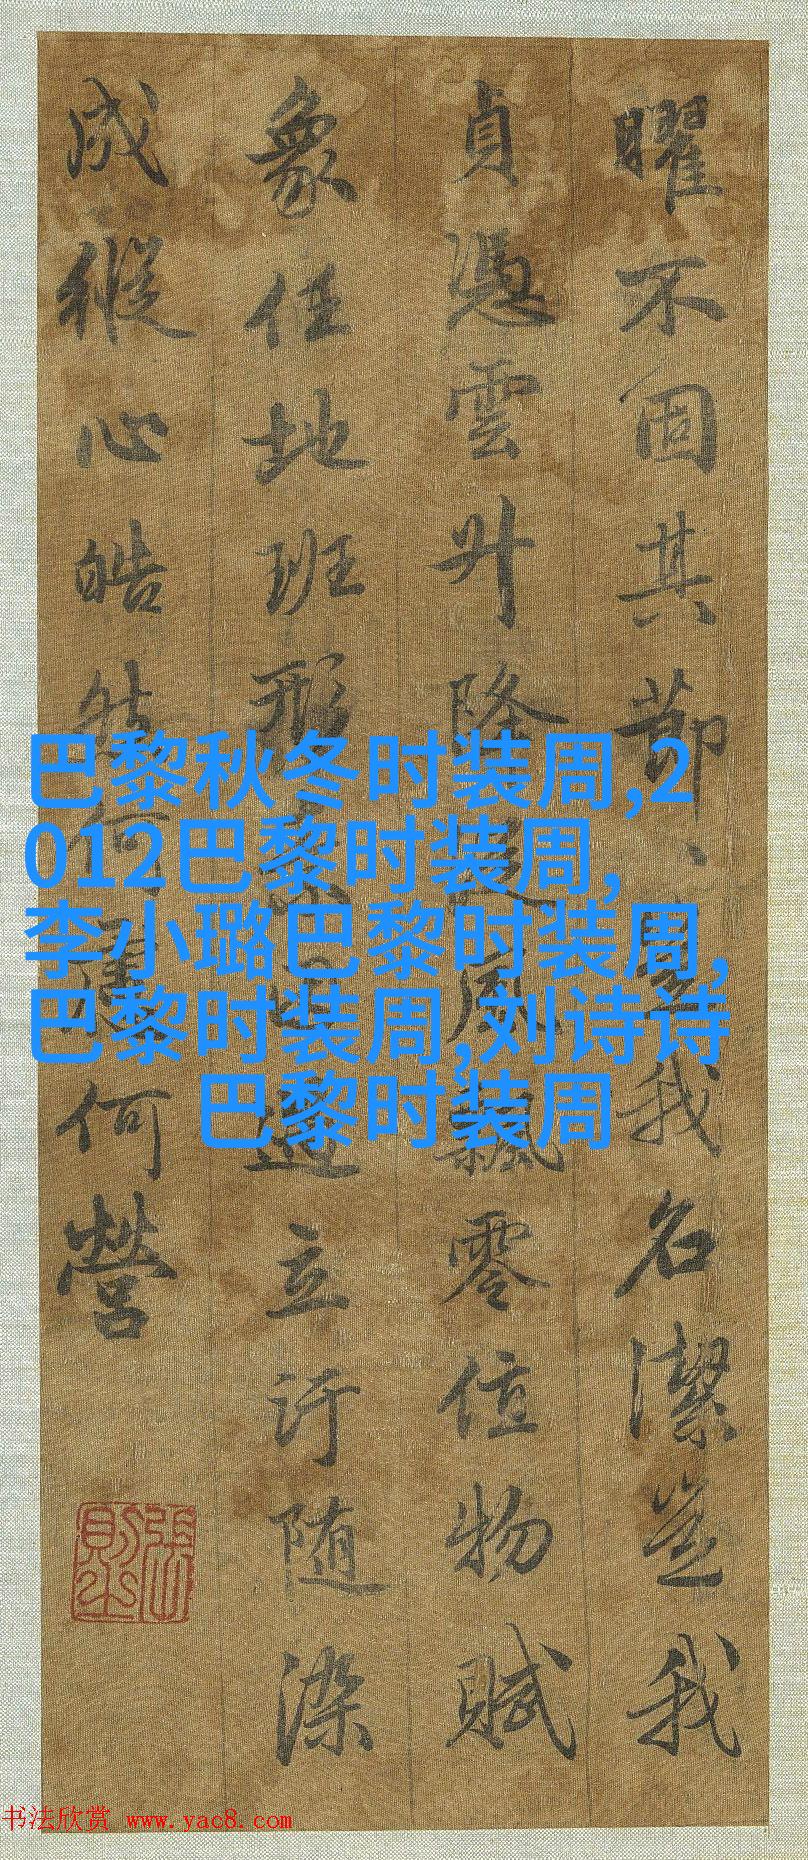 曜不固其節、我名潔豈我
貞憑雲升降從風飄零值物賦
象任地班形遇立汙隨染
成縱心皓然何慮何營
張則之
巴黎秋冬时装周,2
012巴黎时装周,
李小璐巴黎时装周,
巴黎时装周,刘诗诗
巴黎时装周
书法欣赏 www.yac8.com